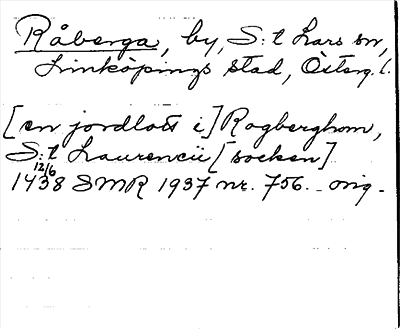 Råberga, by, S:t Lars sn,
Linköpings stad, Österg. l.
[en jordlott i] Ragberghom,
S:t Laurencii [socken]
12/6
1438 SMR 1937 nr. 756. orig.